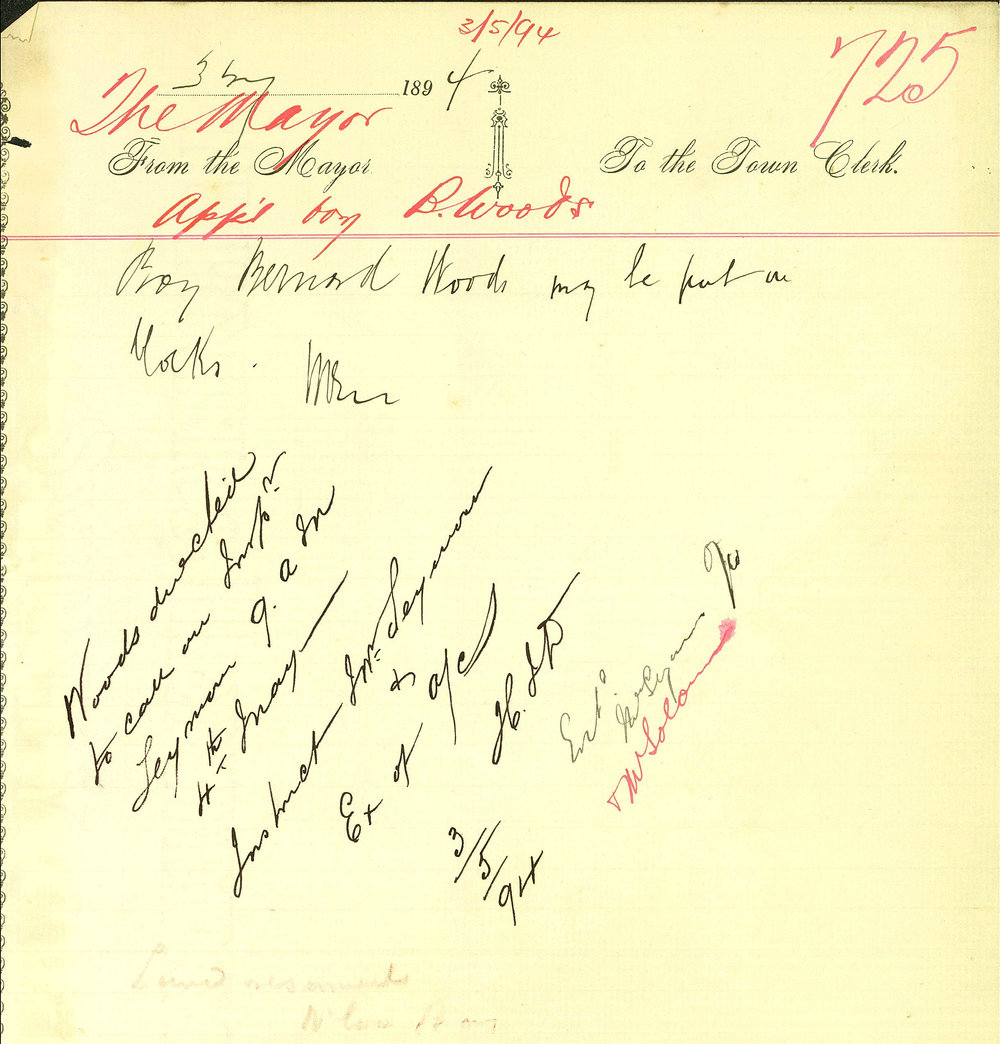 3/5/94
725
3 May 1894
The Mayor
From the Mayor. To the Town Clerk.
App't boy B. Woods
Boy Bernard Woods may be put on
blocks.
Woods directed
to call on Insp.r
Seymour 9. a m
4th May
Instruct Mr Seymour
&
Ex of a/c
3/5/94
Land resumed